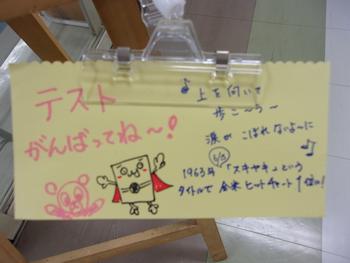 テスト
がんばってね～!
♪上を向いて
歩こ～う～
涙が こぼれないよ～に♪
1963年「スキヤキ」という
タイトルで 全米ヒットチャート1位!!